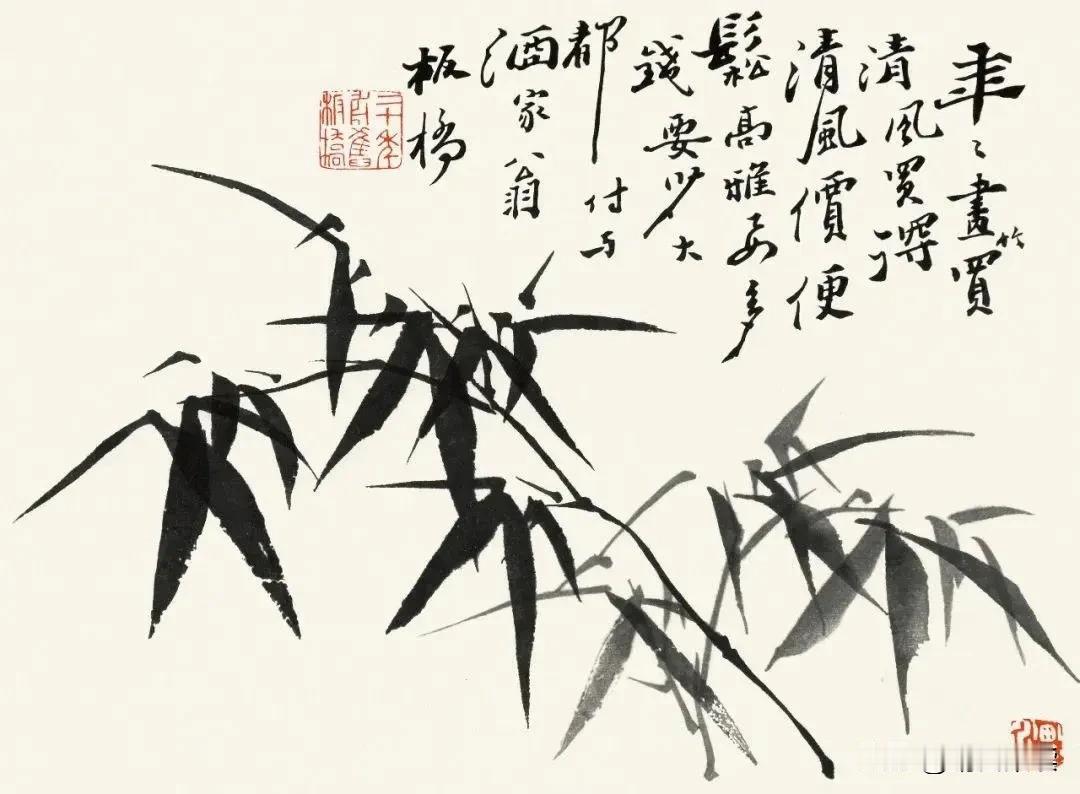 年〻畫竹買
清風買得
清風價便
鬆高雅要多
錢要少大
都付与
酒家翁
板橋
二十年
前舊
板橋